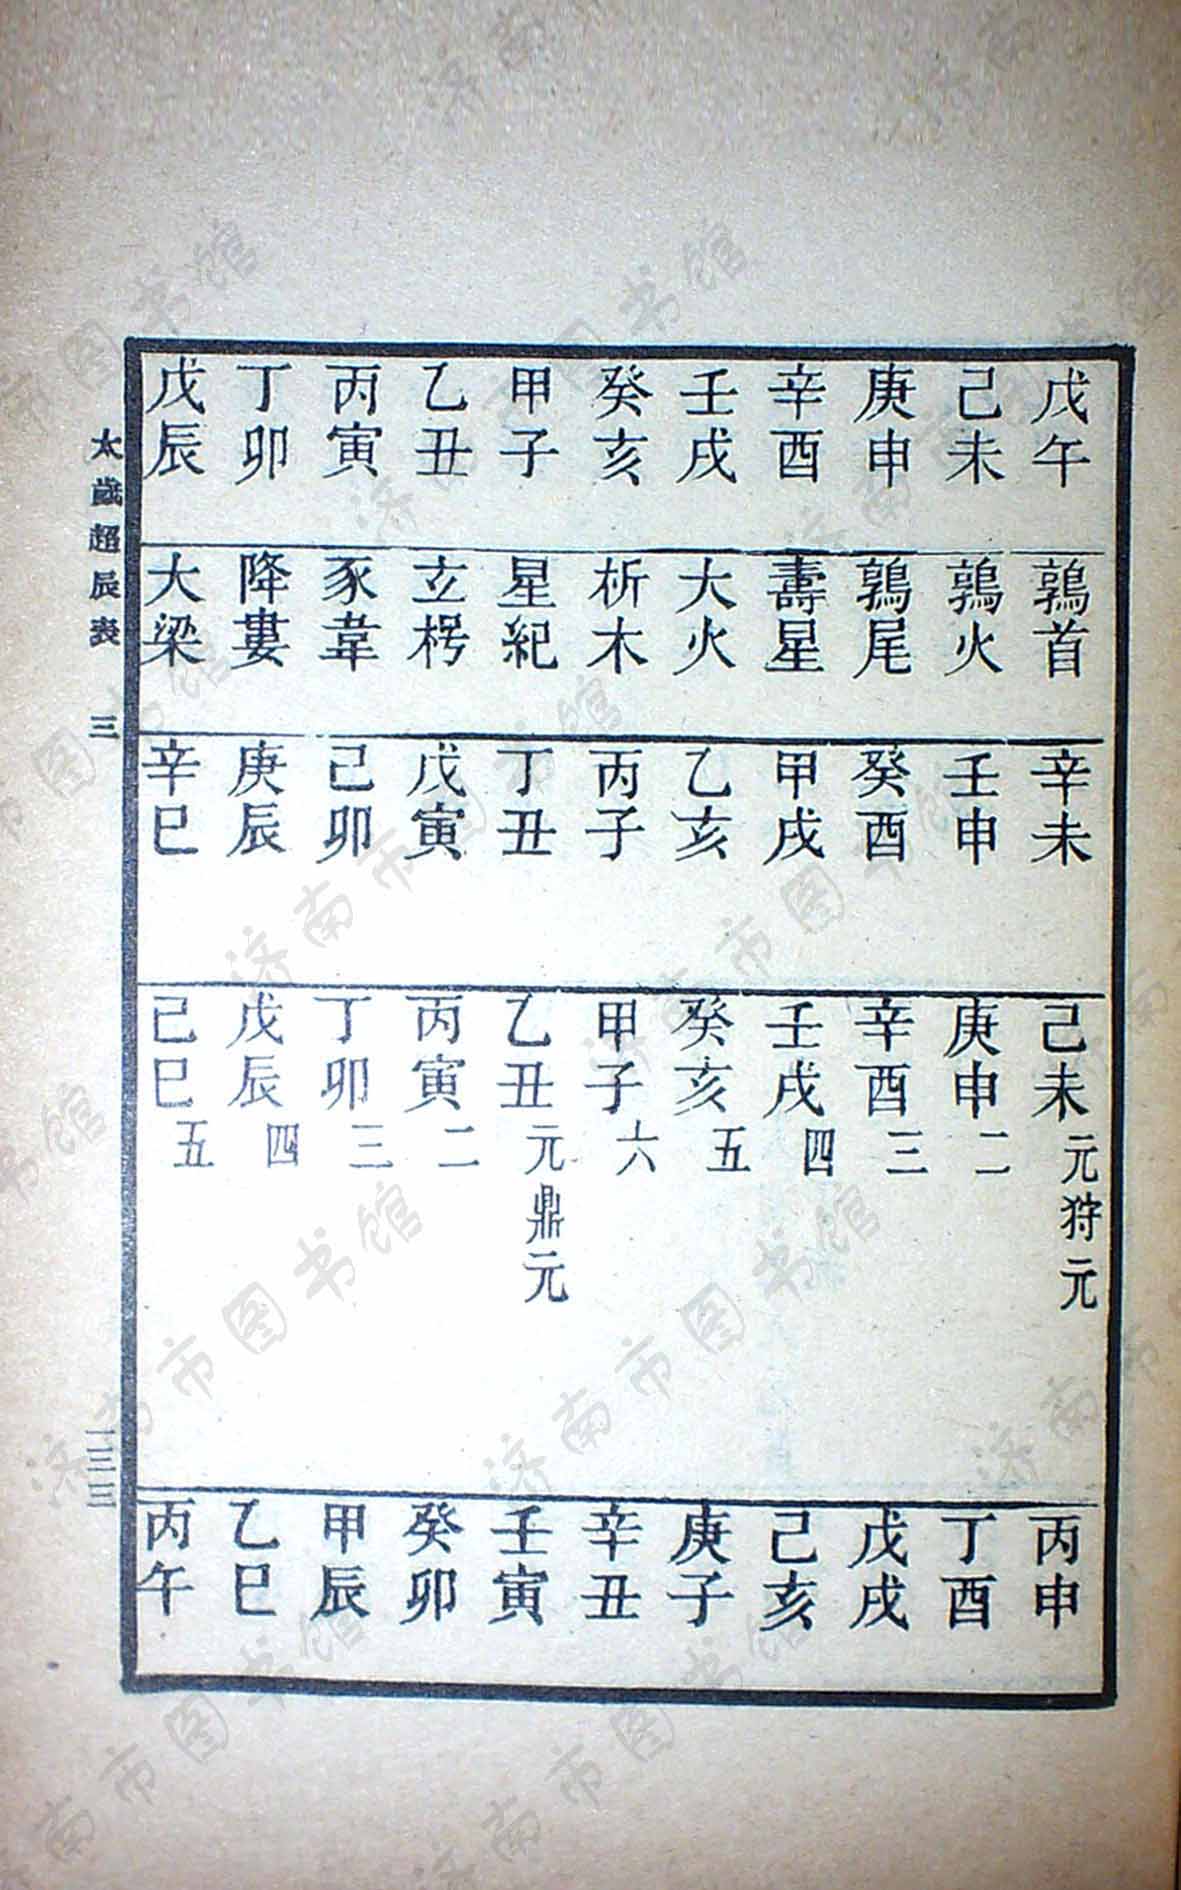 戊午 鶉首 辛未 己未元狩元 丙申
己未 鶉火 壬申 庚申二 丁酉
庚申 鶉尾 癸酉 辛酉三 戊戌
辛酉 壽星 甲戌 壬戌四 己亥
壬戌 大火 乙亥 癸亥五 庚子
癸亥 析木 丙子 甲子六 辛丑
甲子 星紀 丁丑 乙丑元鼎元 壬寅
乙丑 立枵 戊寅 丙寅二 癸卯
丙寅 豕韋 己卯 丁卯三 甲辰
丁卯 降婁 庚辰 戊辰四 乙巳
戊辰 大梁 辛巳 己巳五 丙午
太歲超辰表 三 一三三
济南市图书馆